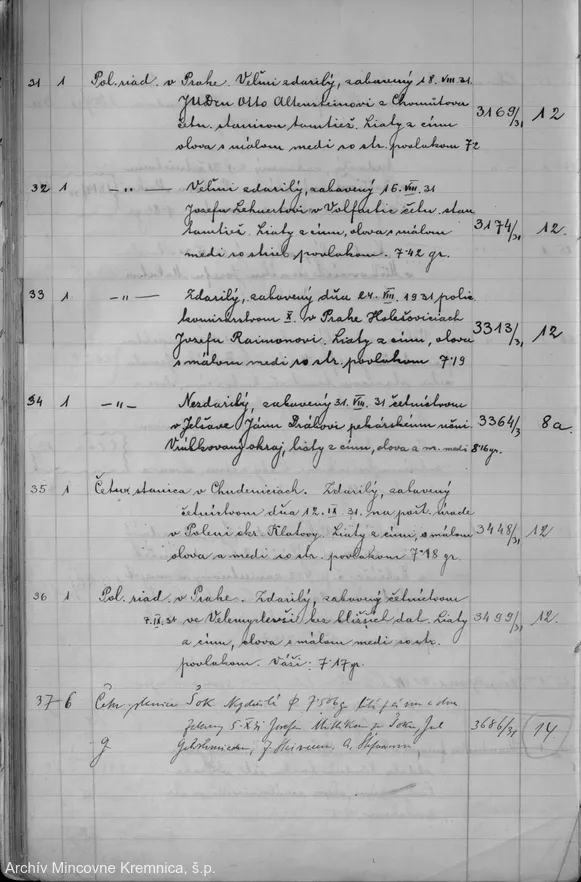 31 1 Pol. riad. v Prahe. Veľmi zdarilý, zabavený 18. VIII. 31.
JUDru Otto Altensteinovi z Chomútova
četn. stanicou tamtiež. Liaty z cínu, 3169/31 12
olova s málom medi so str. povlakom 7.2
32 1 —„— Veľmi zdarilý, zabavený 16. VIII. 31
Josefu Lehnertovi v četn. stan.
tamtiež. Liaty z cínu, olova s málom 3174/31 12.
medi so strieb. povlakom. 7.42 gr.
33 1 —„— Zdarilý, zabavený dňa 24. VIII. 1931 polic.
komisarstvom X. v Prahe Holešoviciach
Josefu Raimonovi. Liaty z cínu, olova 3313/31 12
s málom medi so str. povlakom 7.19
34 1 —„— Nezdarilý, zabavený 31. VIII. 31 četníctvom
v Jelšave Jánu pekárskému učni. 3364/31 8a.
Vrúbkovaný okraj, liaty z cínu, olova a m. medi 8.16 gr.
35 1 Četn. stanica v Chudeniciach. Zdarilý, zabavený
četníctvom dňa 12. IX. 31. na pošt. úrade
v Poleni okr. Klatovy. Liaty z cínu, s málom 3448/31 12
olova a medi so str. povlakom 7.48 gr.
36 1 Pol. riad. v Prahe. Zdarilý, zabavený četníctvom
7. IX. 31 ve Velemyslevsi bez bližších dat. Liaty 3499/31 12.
z cínu, olova s málom medi so str.
povlakom. Váži: 7.17 gr.
37 6 Četn. stanica Šok 7.506 g
5-X 31 Josefom 3686/31 14
Archív Mincovne Kremnica, š.p.